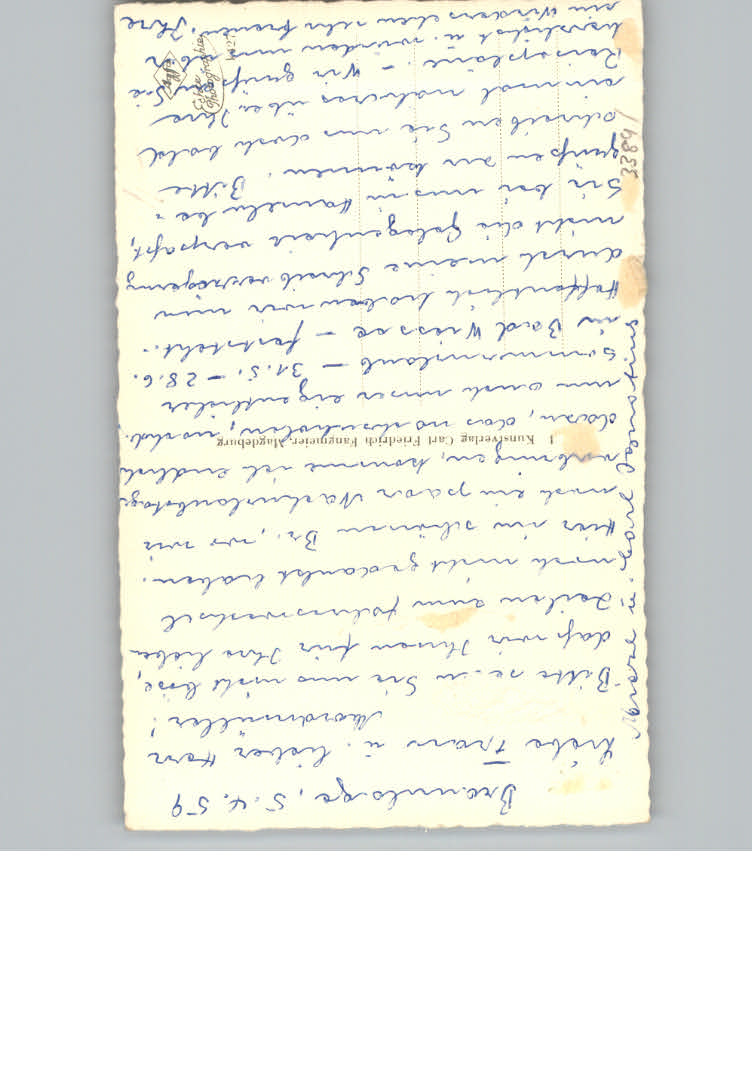 Braunlage, 5.4.59
Liebe Frau u. lieber Herr
Nordmüller!
Bitte sein Sie uns nicht böse,
daß wir Ihnen für Ihre lieben
Zeilen zum Jahreswechsel
noch nicht gedankt haben.
Hier im schönen Br., wo wir
noch ein paar Nachurlaubstage
verbringen, komme ich endlich
dazu, das nachzuholen,
nun auch unser eigentlicher
Sommerurlaub – 31.5. – 28.6.
in Bad Wiessee – feststeht.
Hoffentlich haben wir nun
durch meine Schreibverzögerung
nicht die Gelegenheit verpaßt,
Sie bei uns in Hameln be-
grüßen zu können. Bitte
schreiben Sie uns doch bald
einmal näheres über Ihre
Reisepläne. – Wir grüßen Sie
herzlichst u. würden uns
ein Wiedersehen sehr freuen. Ihre
1 Kunstverlag Carl Friedrich Fangmeier, Magdeburg
Echte
Photographie
3389/